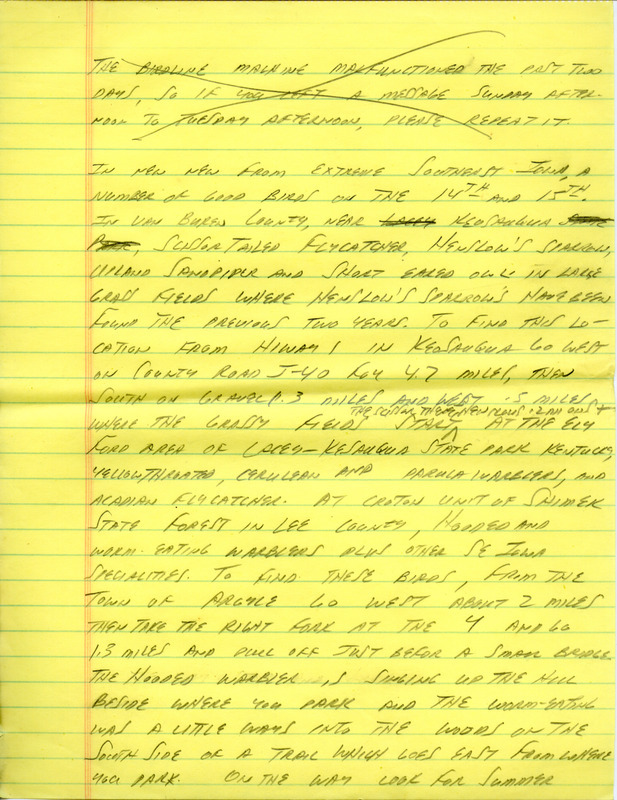 THE BIRDLINE MACHINE MALFUNCTIONED THE PAST TWO
DAYS, SO IF YOU LEFT A MESSAGE SUNDAY AFTER-
NOON TO TUESDAY AFTERNOON, PLEASE REPEAT IT.
IN NEW NEW FROM EXTREME SOUTHEAST IOWA, A
NUMBER OF GOOD BIRDS ON THE 14TH AND 15TH.
IN VAN BUREN COUNTY, NEAR LACEY KEOSAUQUA STATE
PARK, SCISSOR TAILED FLYCATCHER, HENSLOW'S SPARROW,
UPLAND SANDPIPER AND SHORT EARED OWL IN LARGE
GRASS FIELDS WHERE HENSLOW'S SPARROW'S HAVE BEEN
FOUND THE PREVIOUS TWO YEARS. TO FIND THIS LO-
CATION FROM HIWAY 1 IN KEOSAUQUA GO WEST
ON COUNTY ROAD J-40 FOR 4.7 MILES, THEN
SOUTH ON GRAVEL 1.3 MILES AND WEST .5 MILES
THE SCISSOR THEN HENSLOWS
WHERE THE GRASSY FIELDS START. AT THE ELY
FORD AREA OF LACEY-KESAUQUA STATE PARK KENTUCKY,
YELLOWTHROATED, CERULEAN AND PARULA WARBLERS, AND
ACADIAN FLYCATCHER. AT CROTON UNIT OF SHIMEK
STATE FOREST IN LEE COUNTY, HOODED AND
WORM-EATING WARBLERS PLUS OTHER SE IOWA
SPECIALITIES. TO FIND THESE BIRDS, FROM THE
TOWN OF ARGYLE GO WEST ABOUT 2 MILES
THEN TAKE THE RIGHT FORK AT THE Y AND GO
1.3 MILES AND PULL OFF JUST BEFOR A SMALL BRIDGE.
THE HOODED WARBLER IS SINGING UP THE HILL
BESIDE WHERE YOU PARK AND THE WORM-EATING
WAS A LITTLE WAYS INTO THE WOODS ON THE
SOUTH SIDE OF A TRAIL WHICH GOES EAST FROM WHERE
YOU PARK. ON THE WAY LOOK FOR SUMMER